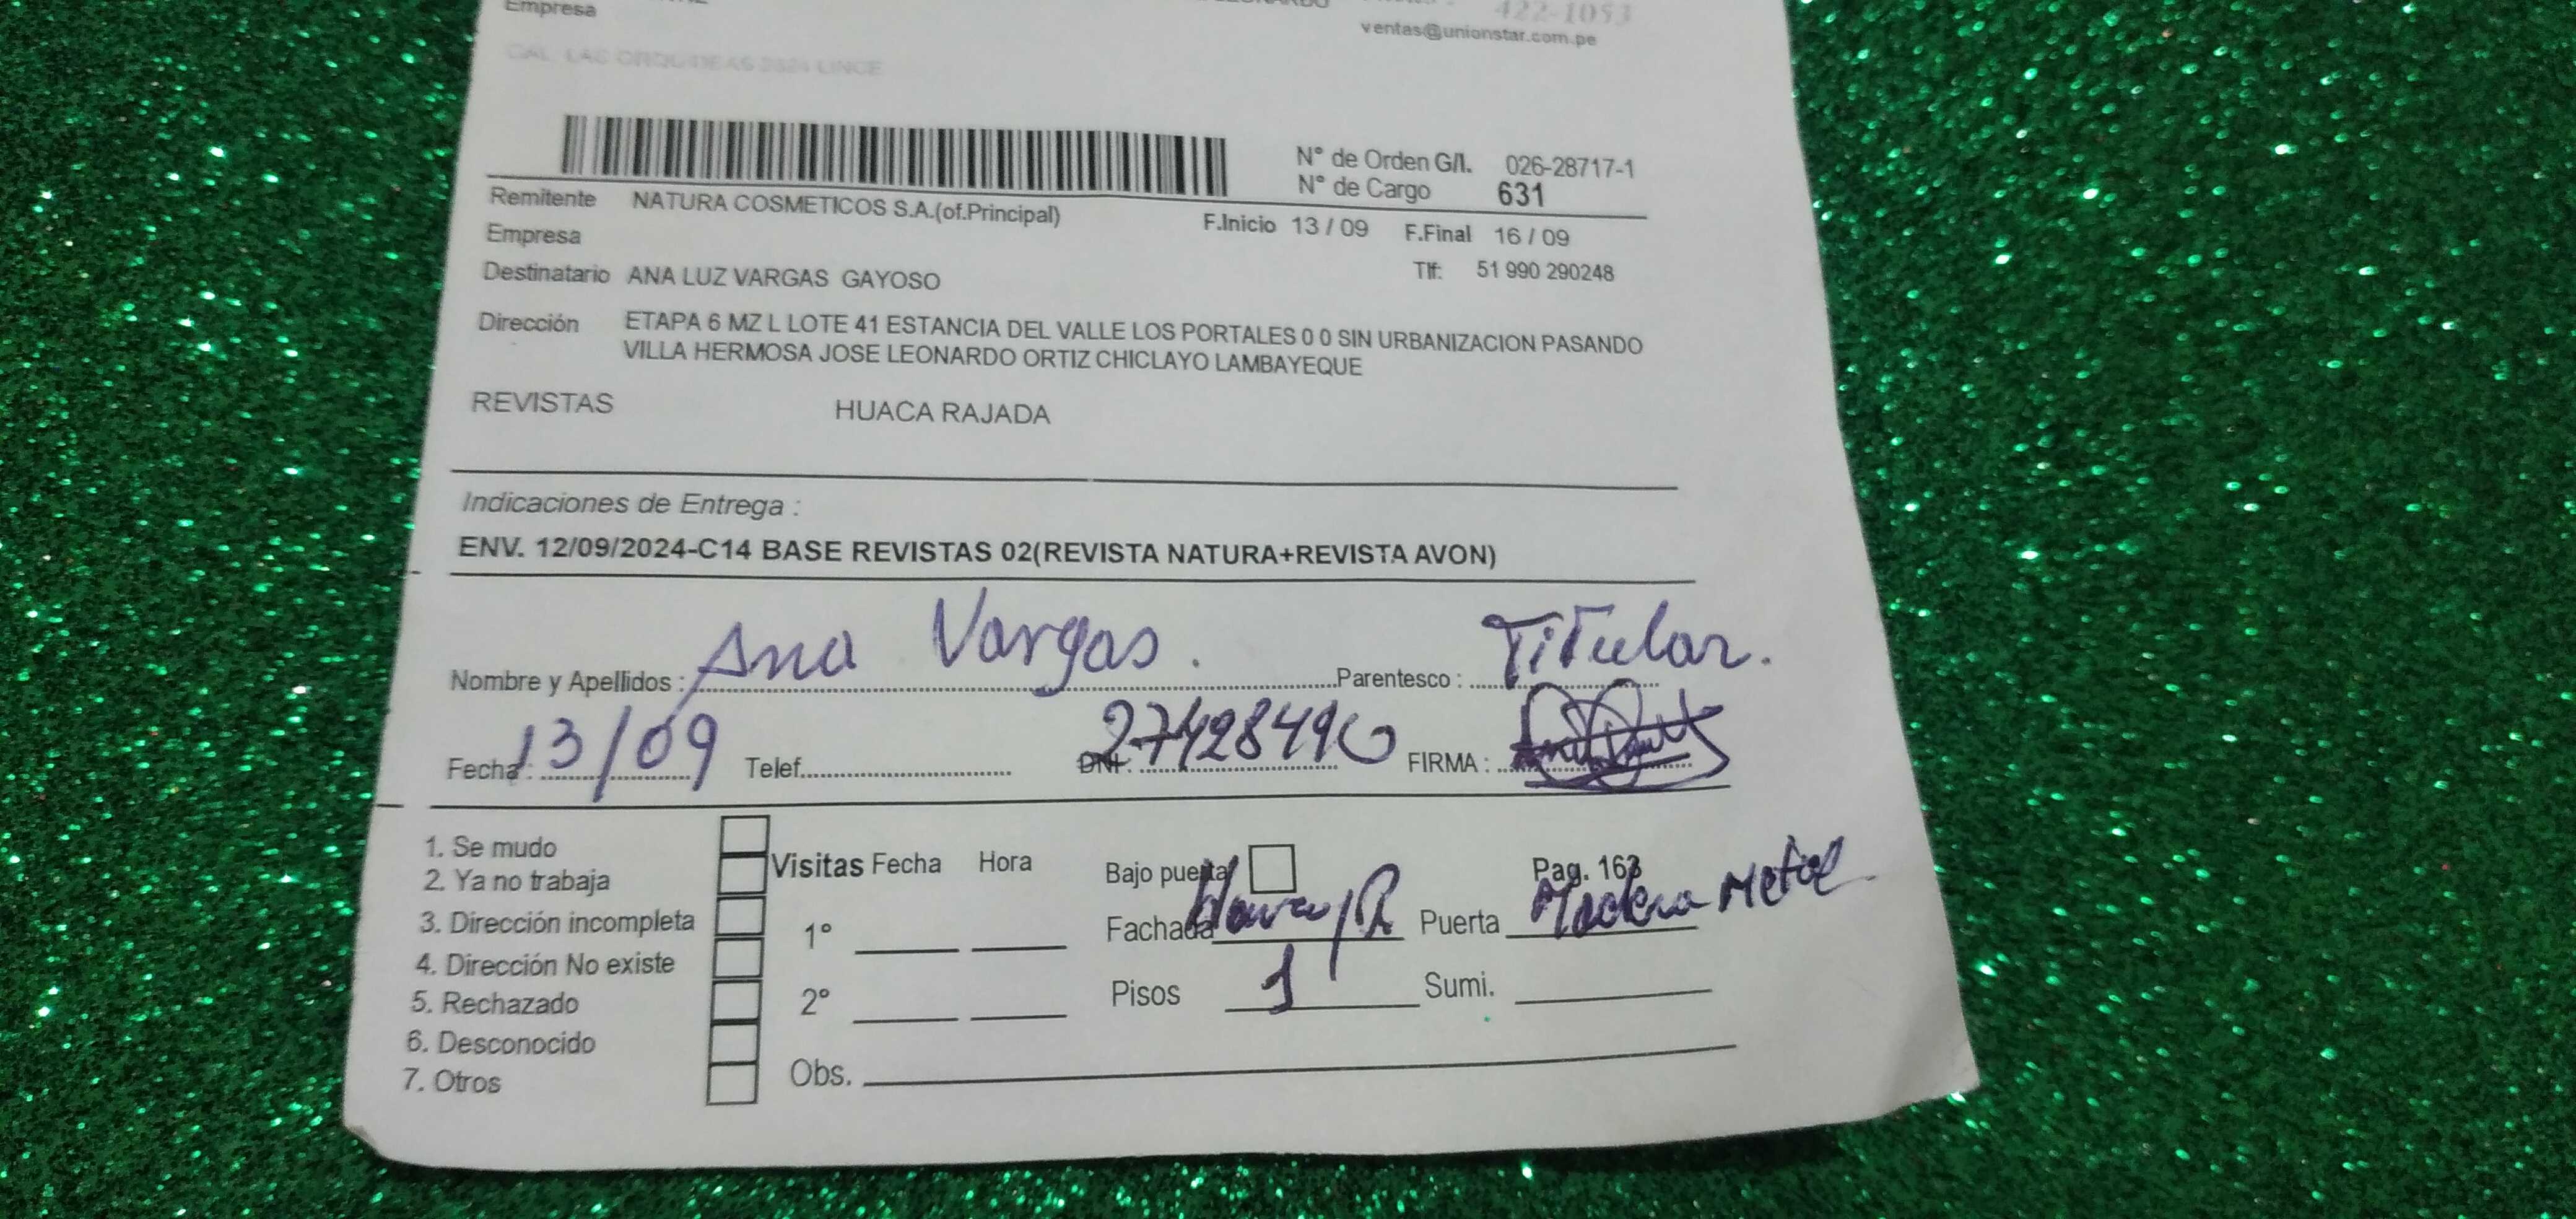 Empresa
422-1053
ventas@unionstar.com.pe
CAL LAS ORQUIDEAS 2624 LINCE
N° de Orden G/I. 026-28717-1
N° de Cargo 631
Remitente NATURA COSMETICOS S.A.(of.Principal)
F.Inicio 13 / 09 F.Final 16 / 09
Empresa
Destinatario ANA LUZ VARGAS GAYOSO
Tlf: 51 990 290248
Dirección ETAPA 6 MZ L LOTE 41 ESTANCIA DEL VALLE LOS PORTALES 0 0 SIN URBANIZACION PASANDO
VILLA HERMOSA JOSE LEONARDO ORTIZ CHICLAYO LAMBAYEQUE
REVISTAS HUACA RAJADA
Indicaciones de Entrega :
ENV. 12/09/2024-C14 BASE REVISTAS 02(REVISTA NATURA+REVISTA AVON)
Nombre y Apellidos : Ana Vargas. Parentesco : Titular.
Fecha: 13/09 Telef. DNI: 27428490 FIRMA :
1. Se mudo
2. Ya no trabaja
3. Dirección incompleta
4. Dirección No existe
5. Rechazado
6. Desconocido
7. Otros
Visitas Fecha Hora
1°
2°
Obs.
Bajo puerta Pag. 163
Fachada Puerta Madera Metal
Pisos 1 Sumi.